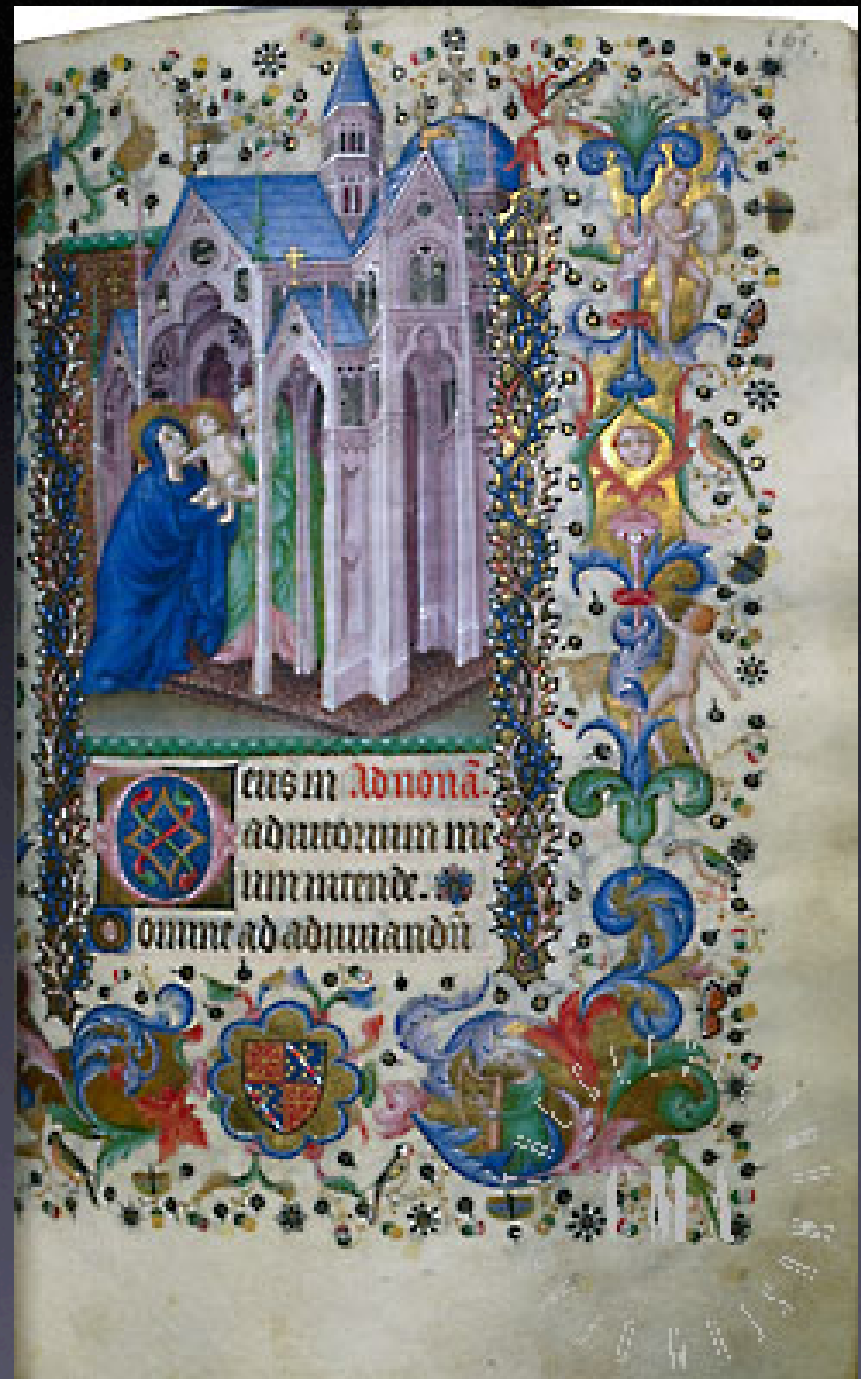 165.
eus in Ad nonã.
adiutorium me
um intende.
Domine ad adiuuandũ
CMA